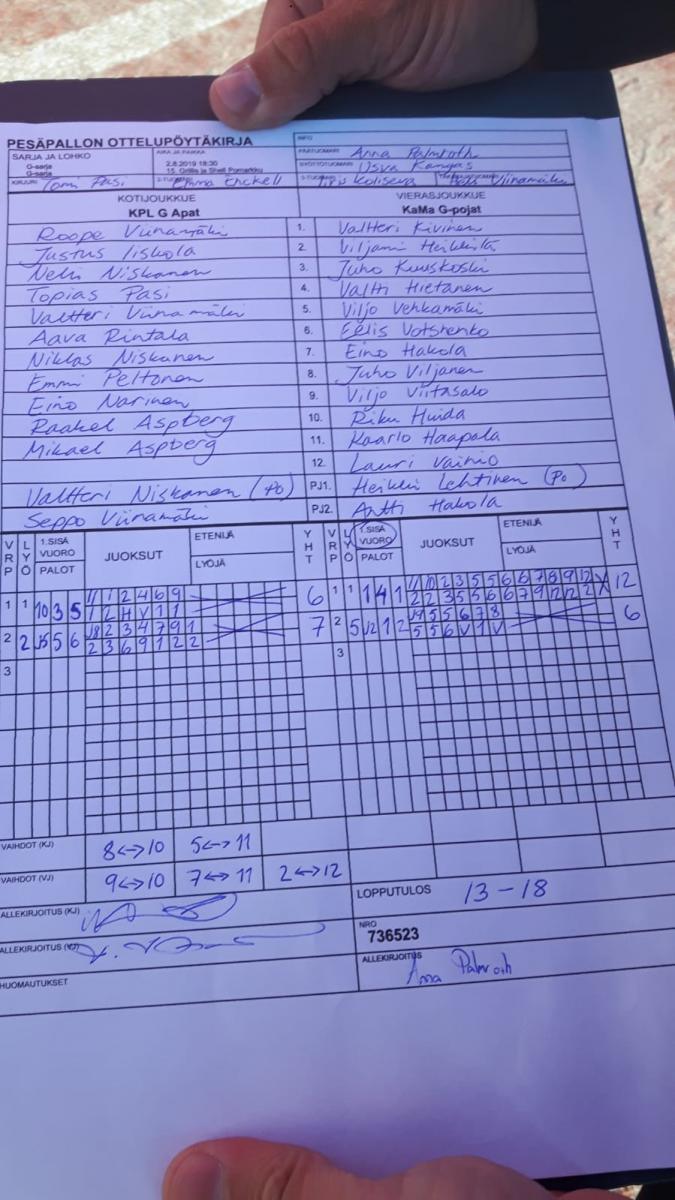 PESÄPALLON OTTELUPÖYTÄKIRJA
INFO
SARJA JA LOHKO
G-sarja
G-sarja
AIKA JA PAIKKA
2.8.2019 18:30
15. Grillis ja Shell Pomarkku
PÄÄTUOMARI Anna Palmroth
SYÖTTÖTUOMARI Usva Kangas
KIRJURI Tomi Pasi
2-TUOMARI Emma Enckell
3-TUOMARI Iiris Koliseva
Viinamäki
KOTIJOUKKUE
KPL G Apat
VIERASJOUKKUE
KaMa G-pojat
Roope Viinamäki 1. Valtteri Kivinen
Justus Iiskola 2. Viljami Heikkilä
Neli Niskanen 3. Juho Kuuskoski
Topias Pasi 4. Valtti Hietanen
Valtteri Viinamäki 5. Viljo Vehkamäki
Aava Rintala 6. Eelis Votshenko
Niklas Niskanen 7. Eino Hakola
Emmi Peltonen 8. Juho Viljanen
Eino Narinen 9. Viljo Viitasalo
Raakel Aspberg 10. Riku Huida
Mikael Aspberg 11. Kaarlo Haapala
12. Lauri Vainio
Valtteri Niskanen (PO) PJ1. Heikki Lehtinen (PO)
Seppo Viinamäki PJ2. Antti Hakola
VRP LYÖ 1.SISÄ VUORO PALOT JUOKSUT ETENIJÄ LYÖJÄ YHT
VRP LYÖ 1.SISÄ VUORO PALOT JUOKSUT ETENIJÄ LYÖJÄ YHT
1 1 10 3 5 11 1 2 4 6 9 6
1 2 H V 1 1
1 1 1 4 1 11 10 2 3 5 5 6 6 7 8 9 12 12
2 2 3 5 5 6 6 7 9 12 12 2 X
2 2 5 6 2 3 4 7 9 1 7
2 3 6 9 1 2 2
2 5 12 1 2 4 5 5 6 7 8 6
5 5 6 V 1 V
3
3
VAIHDOT (KJ) 8<->10 5<->11
VAIHDOT (VJ) 9<->10 7<->11 2<->12
LOPPUTULOS 13-18
ALLEKIRJOITUS (KJ)
NRO
736523
ALLEKIRJOITUS (VJ)
ALLEKIRJOITUS Anna Palmroth
HUOMAUTUKSET